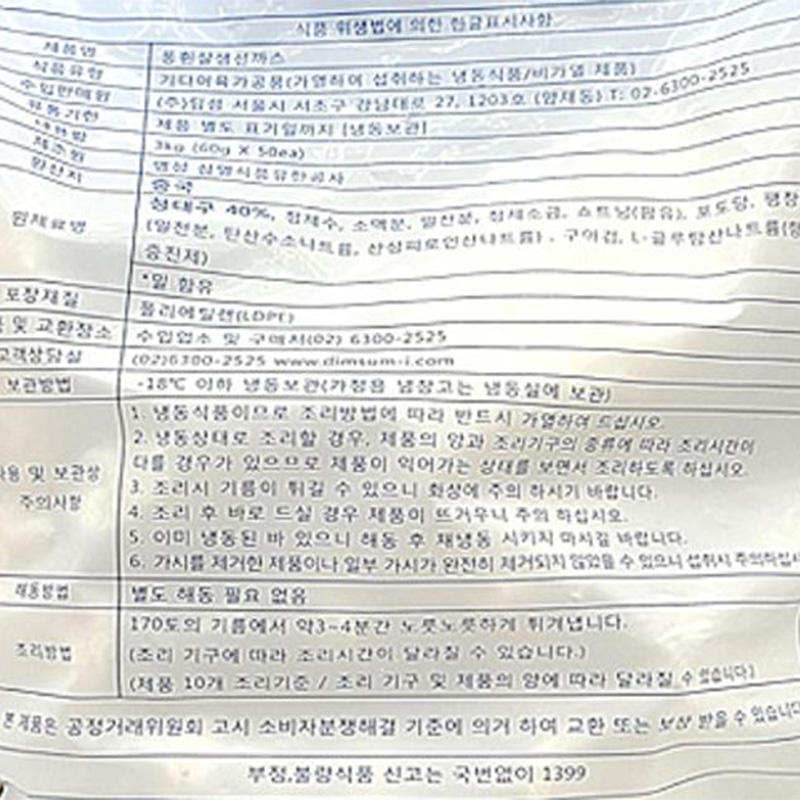 식품 위생법에 의한 한글표시사항
제품명 통흰살생선까스
식품유형 기타어육가공품(가열하여 섭취하는 냉동식품/비가열 제품)
수입판매원 (주)딤섬 서울시 서초구 강남대로 27, 1203호 (양재동) T: 02-6300-2525
유통기한 제품 별도 표기일까지 [냉동보관]
내용량 3kg (60g X 50ea)
제조원 영성 식품유한공사
원산지 중국
원재료명 40%, 정제수, 소맥분, 밀전분, 정제소금, 쇼트닝(팜유), 포도당,
(밀전분, 탄산수소나트륨, 산성피로인산나트륨), 구아검, L-글루탐산나트륨
증진제)
*밀 함유
포장재질 폴리에틸렌(LDPE)
및 교환장소 수입업소 및 구매처(02) 6300-2525
고객상담실 (02)6300-2525 www.dimsum-i.com
보관방법 -18℃ 이하 냉동보관(가정용 냉장고는 냉동실에 보관)
사용 및 보관상
주의사항
1. 냉동식품이므로 조리방법에 따라 반드시 가열하여 드십시오.
2. 냉동상태로 조리할 경우, 제품의 양과 조리기구의 종류에 따라 조리시간이
다를 경우가 있으므로 제품이 익어가는 상태를 보면서 조리하도록 하십시오.
3. 조리시 기름이 튀길 수 있으니 화상에 주의 하시기 바랍니다.
4. 조리 후 바로 드실 경우 제품이 뜨거우니 주의 하십시오.
5. 이미 냉동된 바 있으니 해동 후 재냉동 시키지 마시길 바랍니다.
6. 가시를 제거한 제품이나 일부 가시가 완전히 제거되지 않았을 수 있으니 섭취시 주의하십시
해동방법 별도 해동 필요 없음
조리방법
170도의 기름에서 약3~4분간 노릇노릇하게 튀겨냅니다.
(조리 기구에 따라 조리시간이 달라질 수 있습니다.)
(제품 10개 조리기준 / 조리 기구 및 제품의 양에 따라 달라질 수 있습니다)
본 제품은 공정거래위원회 고시 소비자분쟁해결 기준에 의거 하여 교환 또는 보상 받을 수 있습니다
부정,불량식품 신고는 국번없이 1399